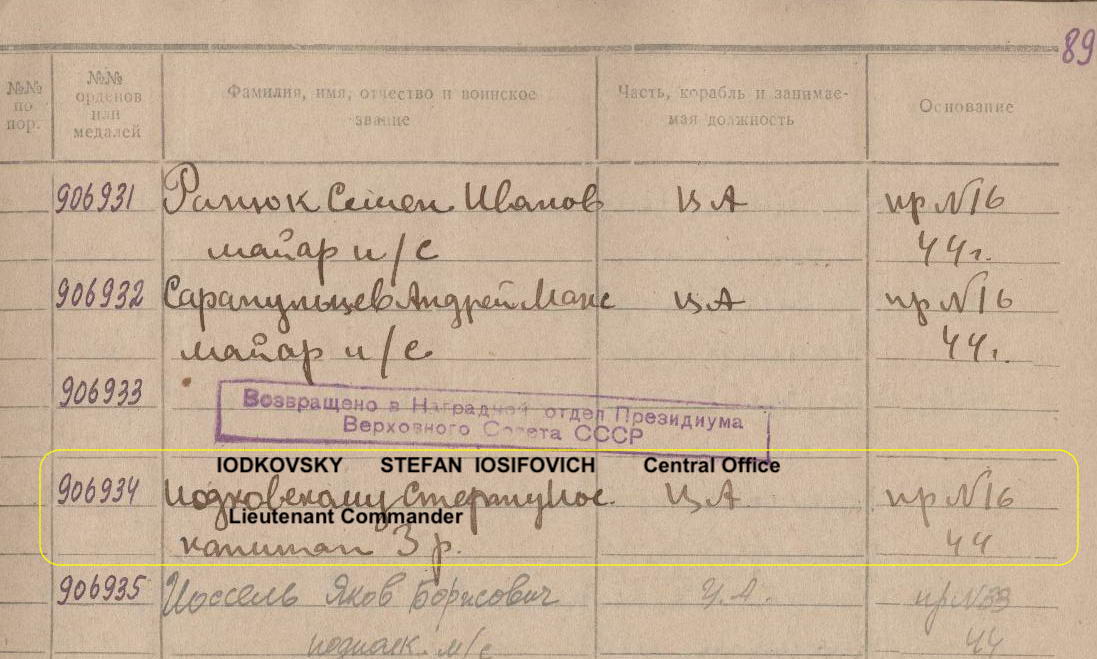 89
№№ по пор.
№№ орденов или медалей
Фамилия, имя, отчество и воинское звание
Часть, корабль и занимаемая должность
Основание
906931 Ранюк Семен Иванов ЦА пр №16
майор и/с 44г.
906932 Сарапульцев Андрей Макс ЦА пр №16
майор и/с 44г.
906933
Возвращено в Наградной отдел Президиума
Верховного Совета СССР
IODKOVSKY STEFAN IOSIFOVICH Central Office
906934 Иодковскому Стефану Иос. ЦА пр №16
Lieutenant Commander
капитан 3 р. 44
906935 Иоссель Яков Борисович Ц.А. пр №33
44